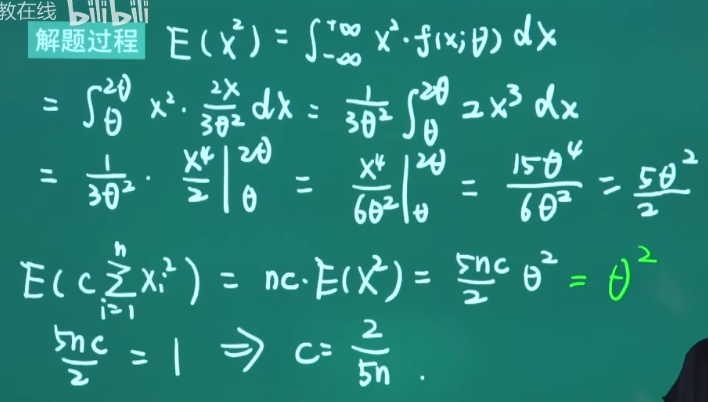 教在线 bilibili
解题过程 E(X²) = ∫_{-∞}^{+∞} x²·f(x;θ) dx
= ∫_θ^{2θ} x²· 2x/3θ² dx = 1/3θ² ∫_θ^{2θ} 2x³ dx
= 1/3θ² · x⁴/2 |_θ^{2θ} = x⁴/6θ² |_θ^{2θ} = 15θ⁴/6θ² = 5θ²/2
E(c∑_{i=1}^{n} Xᵢ²) = nc·E(X²) = 5nc/2 θ² = θ²
5nc/2 = 1 ⇒ c = 2/5n .